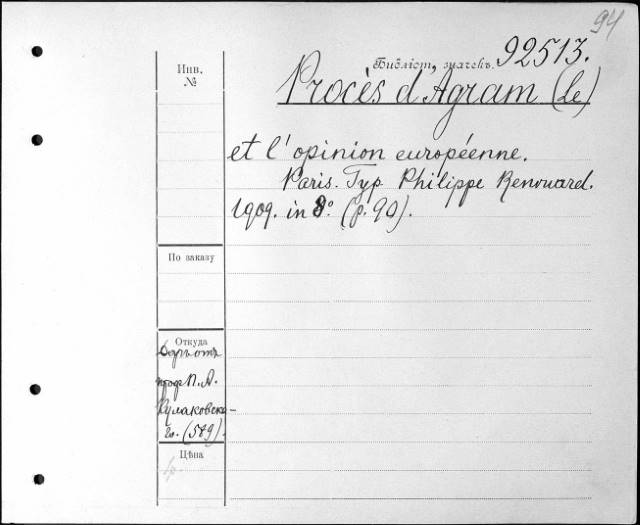 94
Библіот. значекъ. 92513.
Инв.
№
Procès d'Agram (le)
et l'opinion européenne.
Paris. Typ Philippe Renouard.
1909. in 8º. (p. 90).
По заказу
Откуда
Даръ отъ
проф. П. А.
Кулаковска-
го. (589).
Цѣна